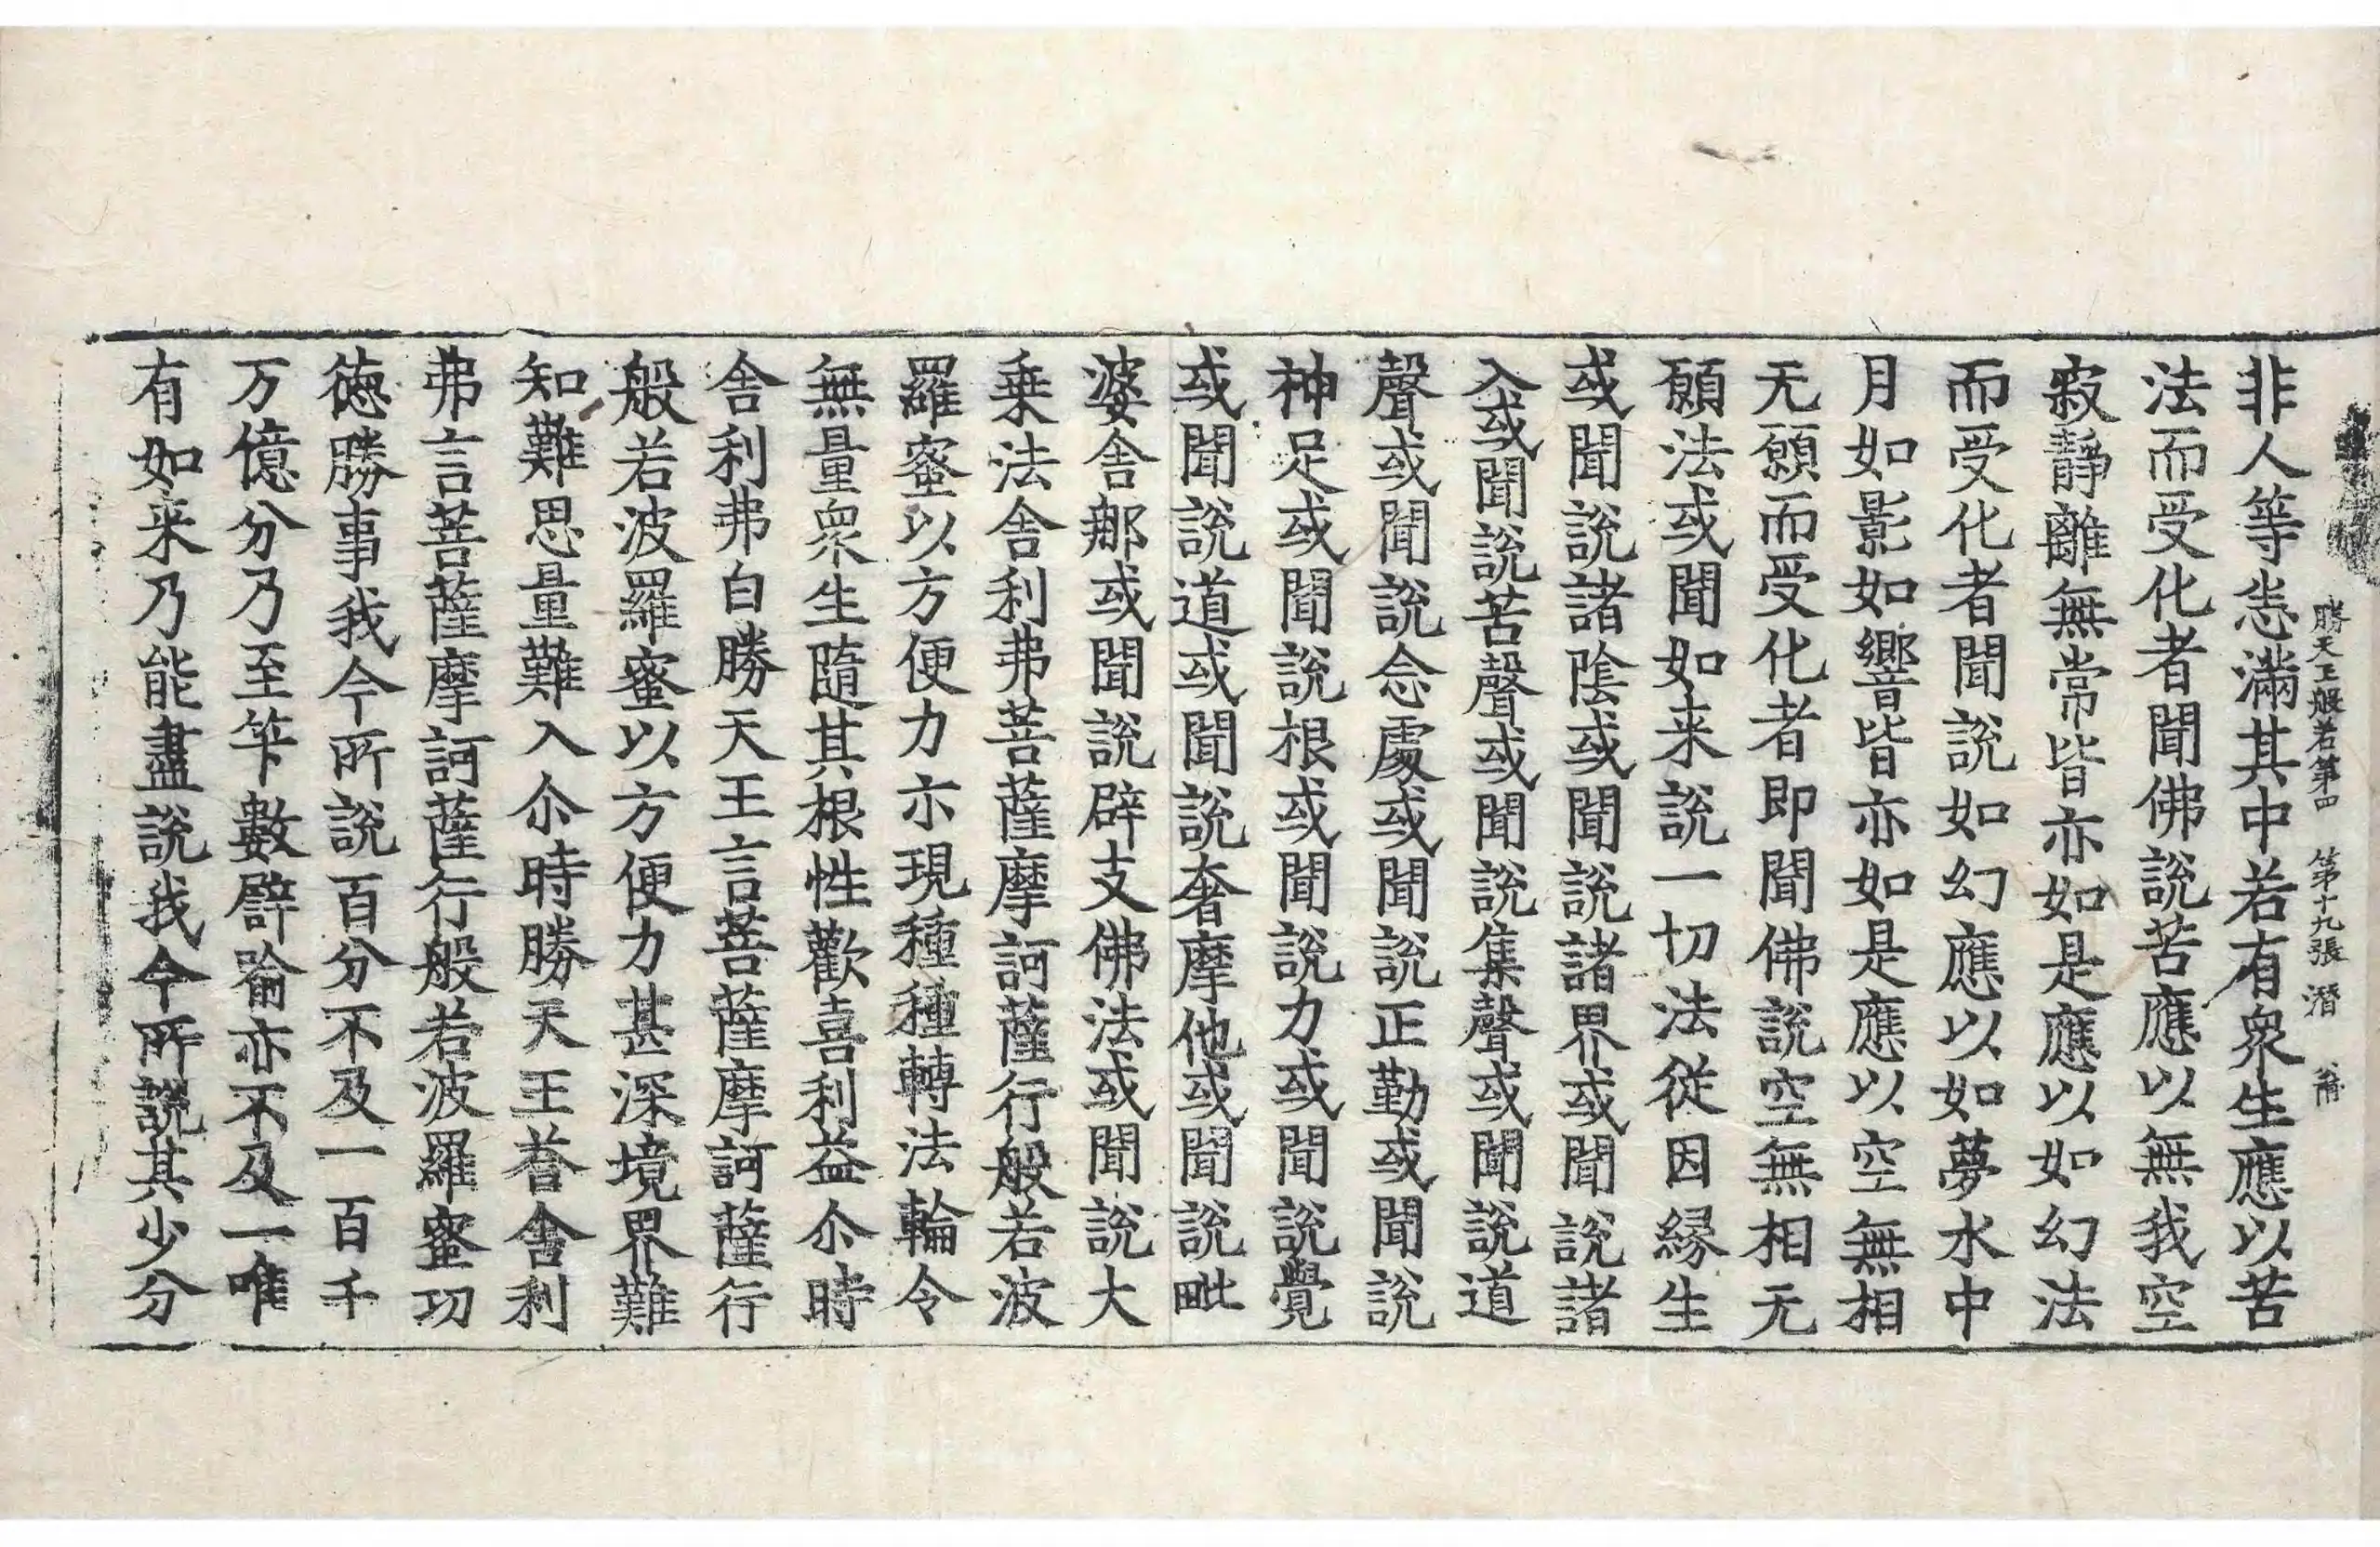 勝天王般若第四　第十九張　潛
非人等悉滿其中若有衆生應以苦
法而受化者聞佛說苦應以無我空
寂靜離無常皆亦如是應以如幻法
而受化者聞說如幻應以如夢水中
月如影如響皆亦如是應以空無相
无願而受化者即聞佛說空無相无
願法或聞如来說一切法從因縁生
或聞說諸陰或聞說諸界或聞說諸
入或聞說苦聲或聞說集聲或聞說道
聲或聞說念處或聞說正勤或聞說
神足或聞說根或聞說力或聞說覺
或聞說道或聞說奢摩他或聞說毗
婆舍那或聞說辟支佛法或聞說大
乗法舎利弗菩薩摩訶薩行般若波
羅蜜以方便力亦現種種轉法輪令
無量衆生隨其根性歡喜利益尒時
舎利弗白勝天王言菩薩摩訶薩行
般若波羅蜜以方便力甚深境界難
知難思量難入尒時勝天王荅舎利
弗言菩薩摩訶薩行般若波羅蜜功
德勝事我今所說百分不及一百千
万億分乃至筭數譬喻亦不及一唯
有如来乃能盡說我今所說其少分